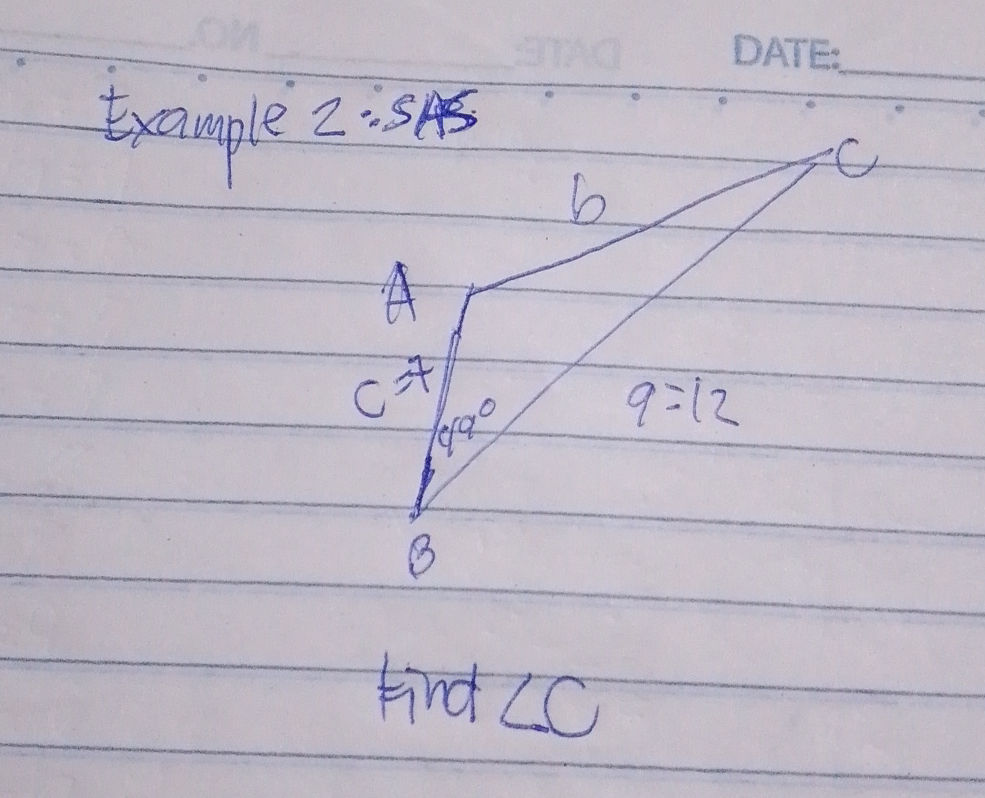 DATE:
Example 2: SAS
C
b
A
C=7
49°
a=12
B
Find ∠C